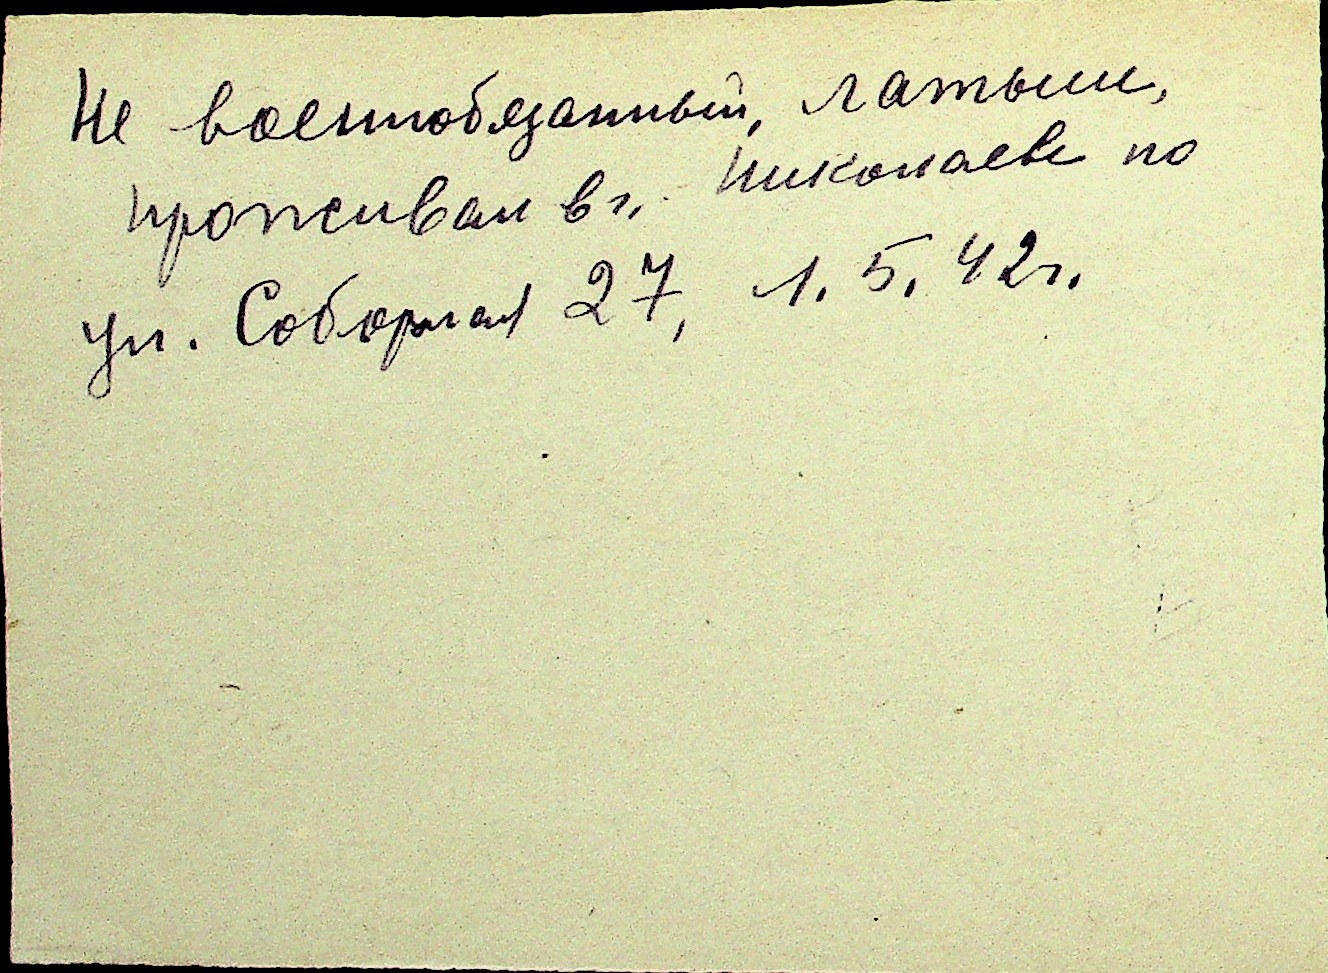 Не военнобязанный, латыш,
проживал в г. Николаеве по
ул. Соборная 27, 1.5.42г.